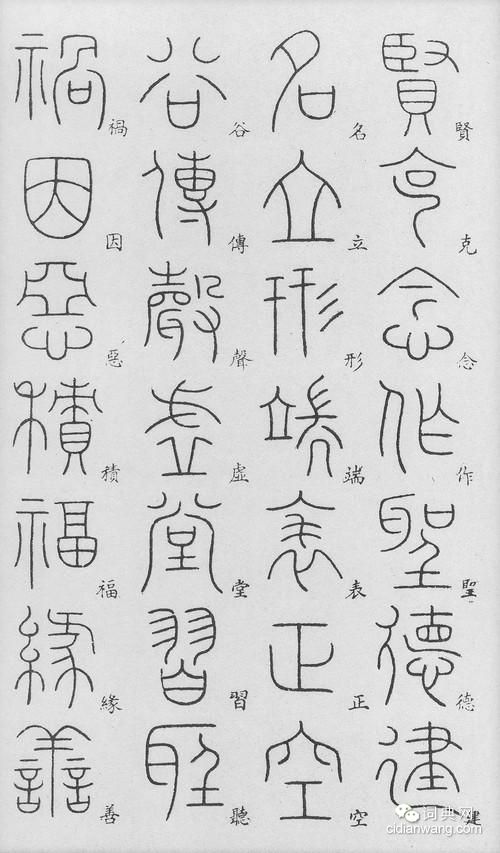 賢克念作聖德建
名立形端表正空
谷傳聲虛堂習聽
禍因惡積福緣善
词典网
cidianwang.com